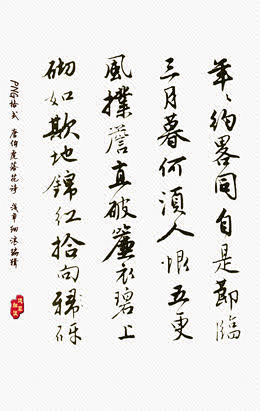 年、約畧同自是節臨
三月暮何須人恨五更
風撲簷直破簾衣碧上
砌如欺地錦紅拾向砑
PNG格式 唐伯虎落花诗 浅草细沫编辑